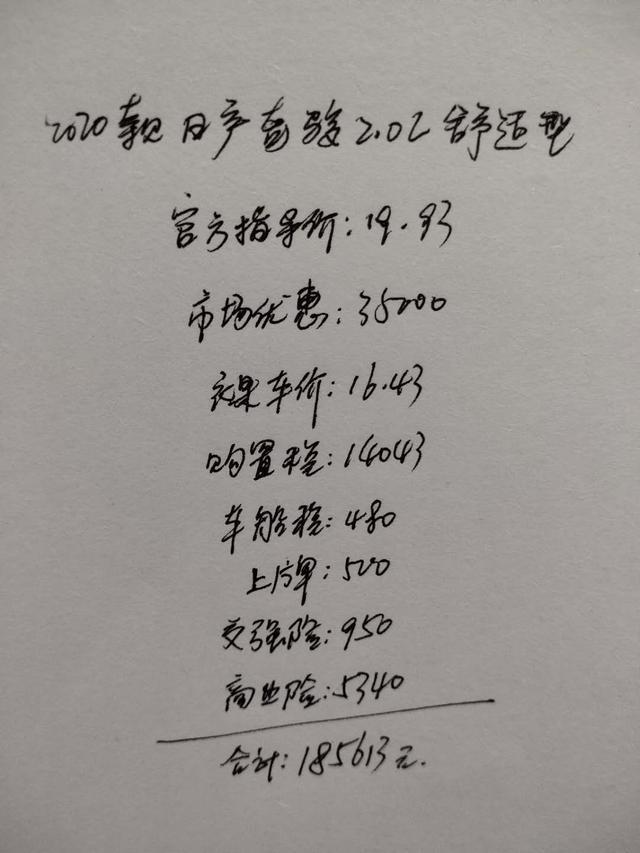 2020款日产奇骏2.0L舒适型
官方指导价:19.93
市场优惠:35200
裸车价:16.43
购置税:14043
车船税:480
上牌:500
交强险:950
商业险:5340
合计:185613元.